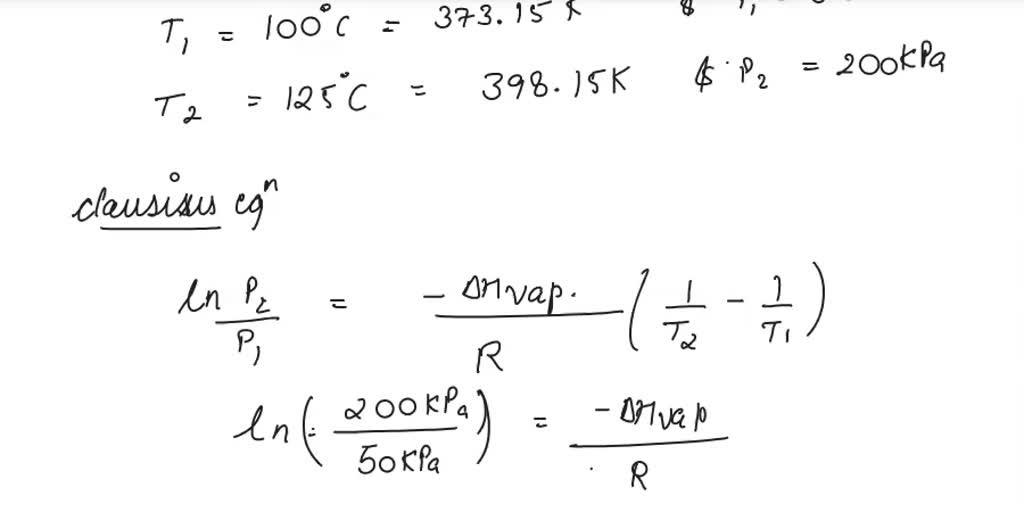 T₁ = 100°C = 373.15 K
T₂ = 125°C = 398.15K & P₂ = 200kPa
clausisus eqⁿ
ln P₂/P₁ = - ΔHvap. / R (1/T₂ - 1/T₁)
ln(200KPa/50KPa) = -ΔHvap / R